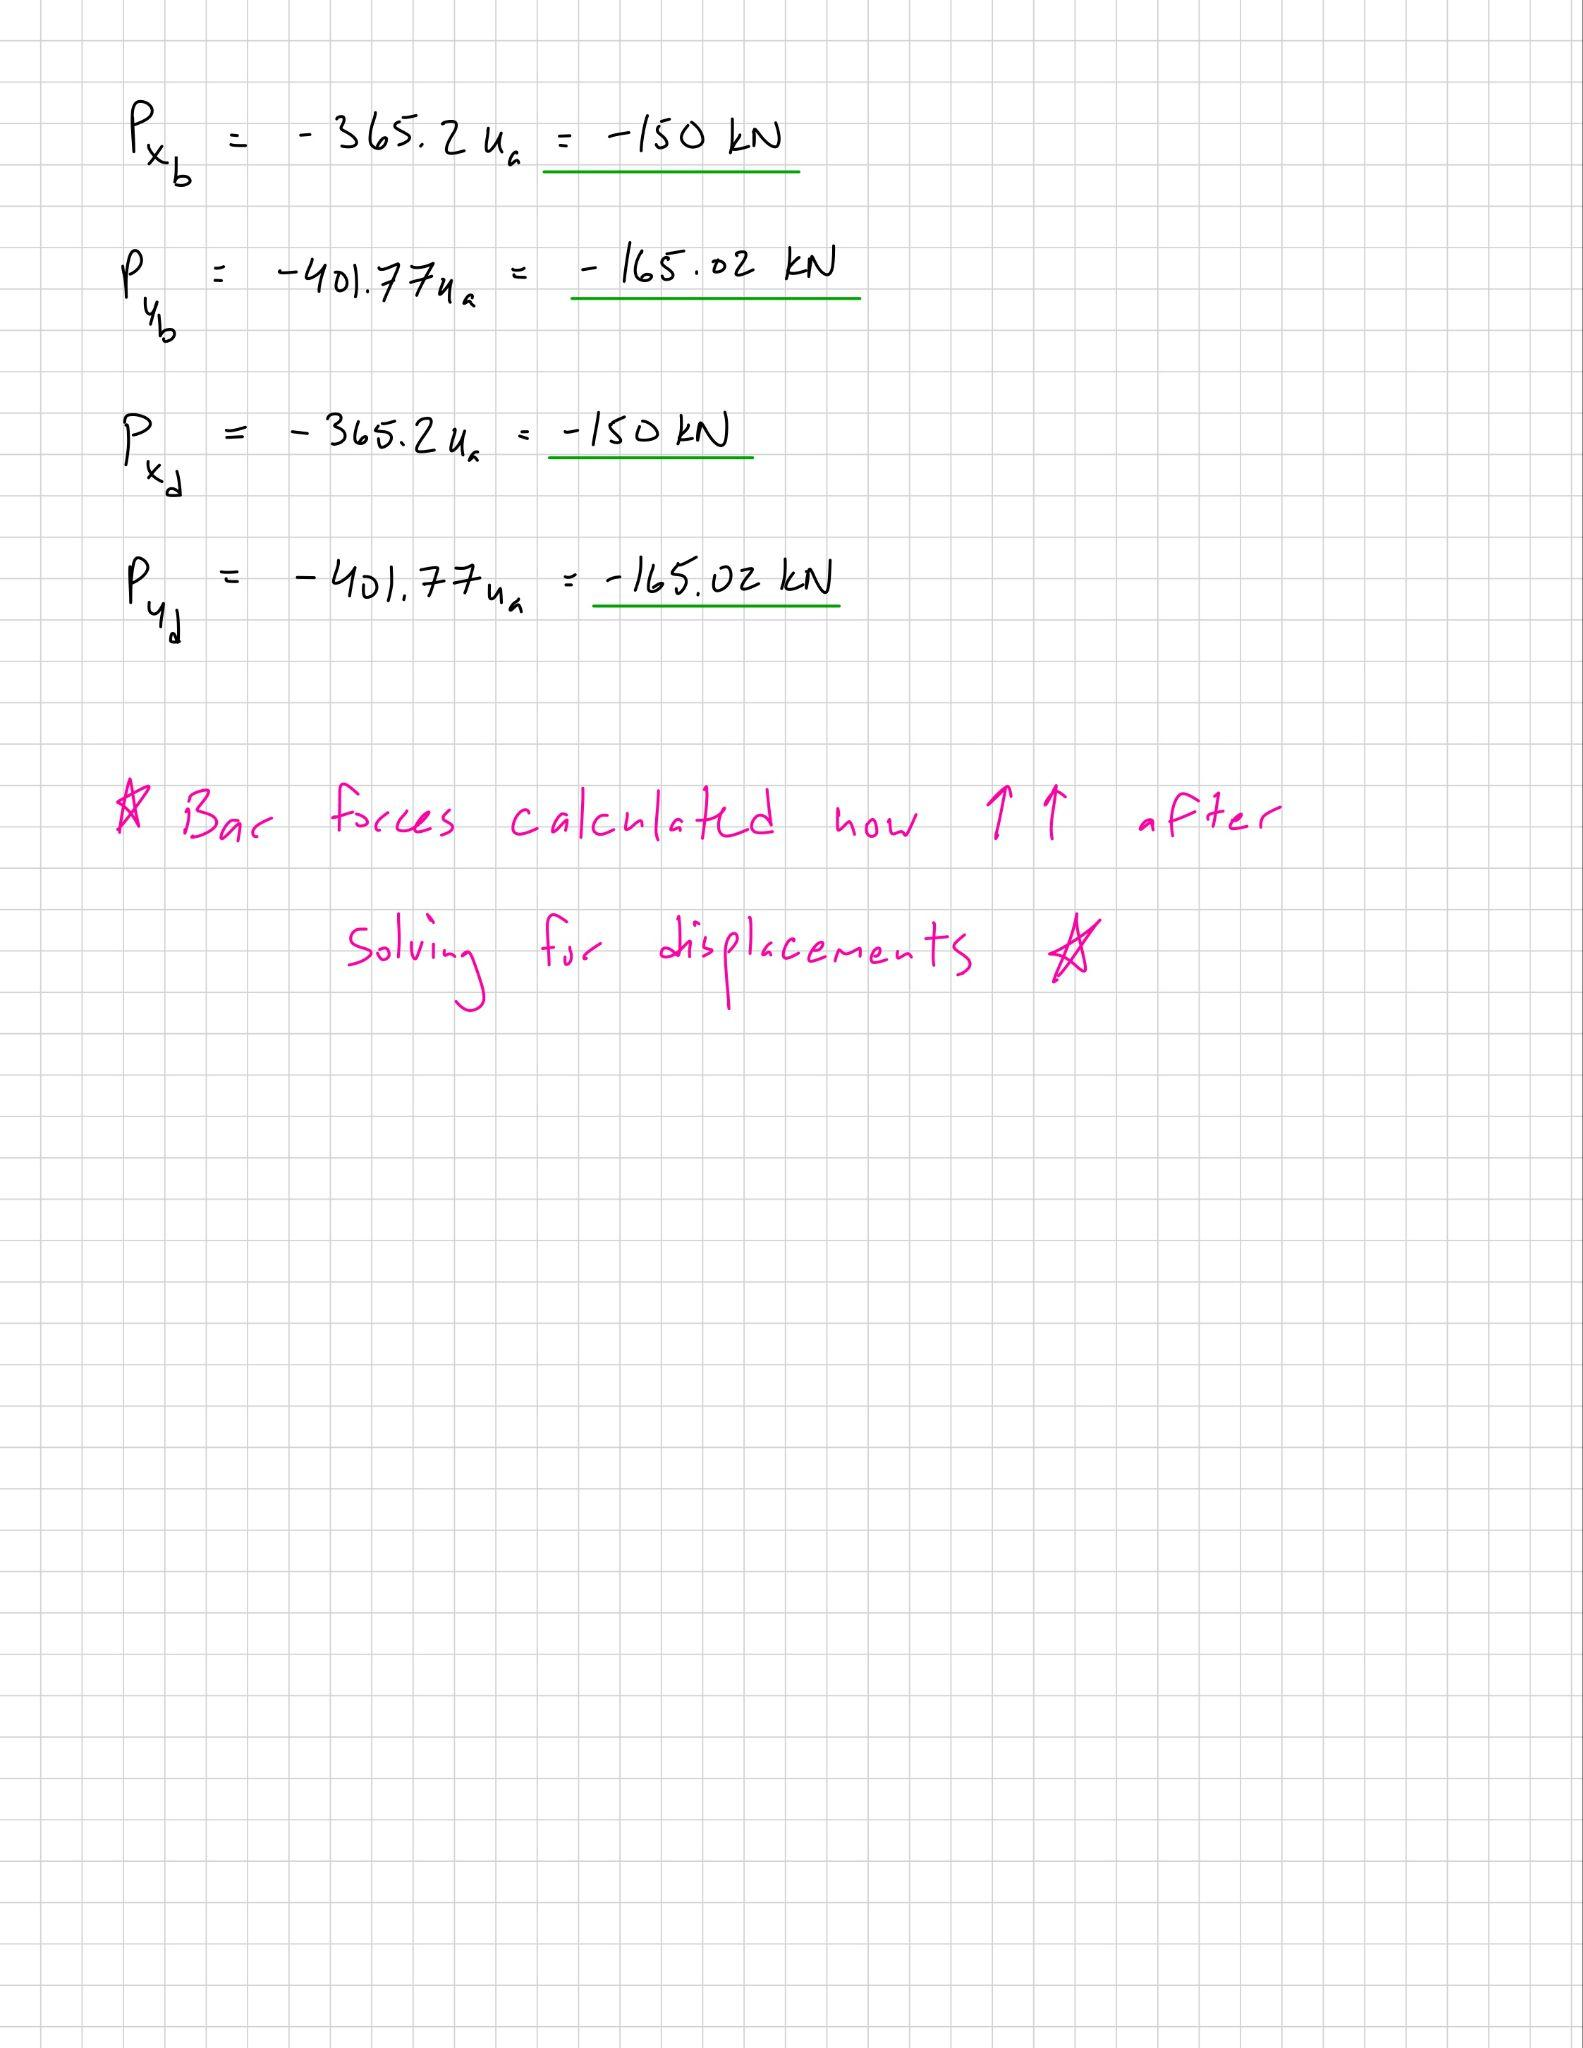 P_{x_b} = -365.2 u_a = -150 kN
P_{y_b} = -401.77 u_a = -165.02 kN
P_{x_d} = -365.2 u_a = -150 kN
P_{y_d} = -401.77 u_a = -165.02 kN
☆ Bar forces calculated now ↑↑ after
solving for displacements ☆